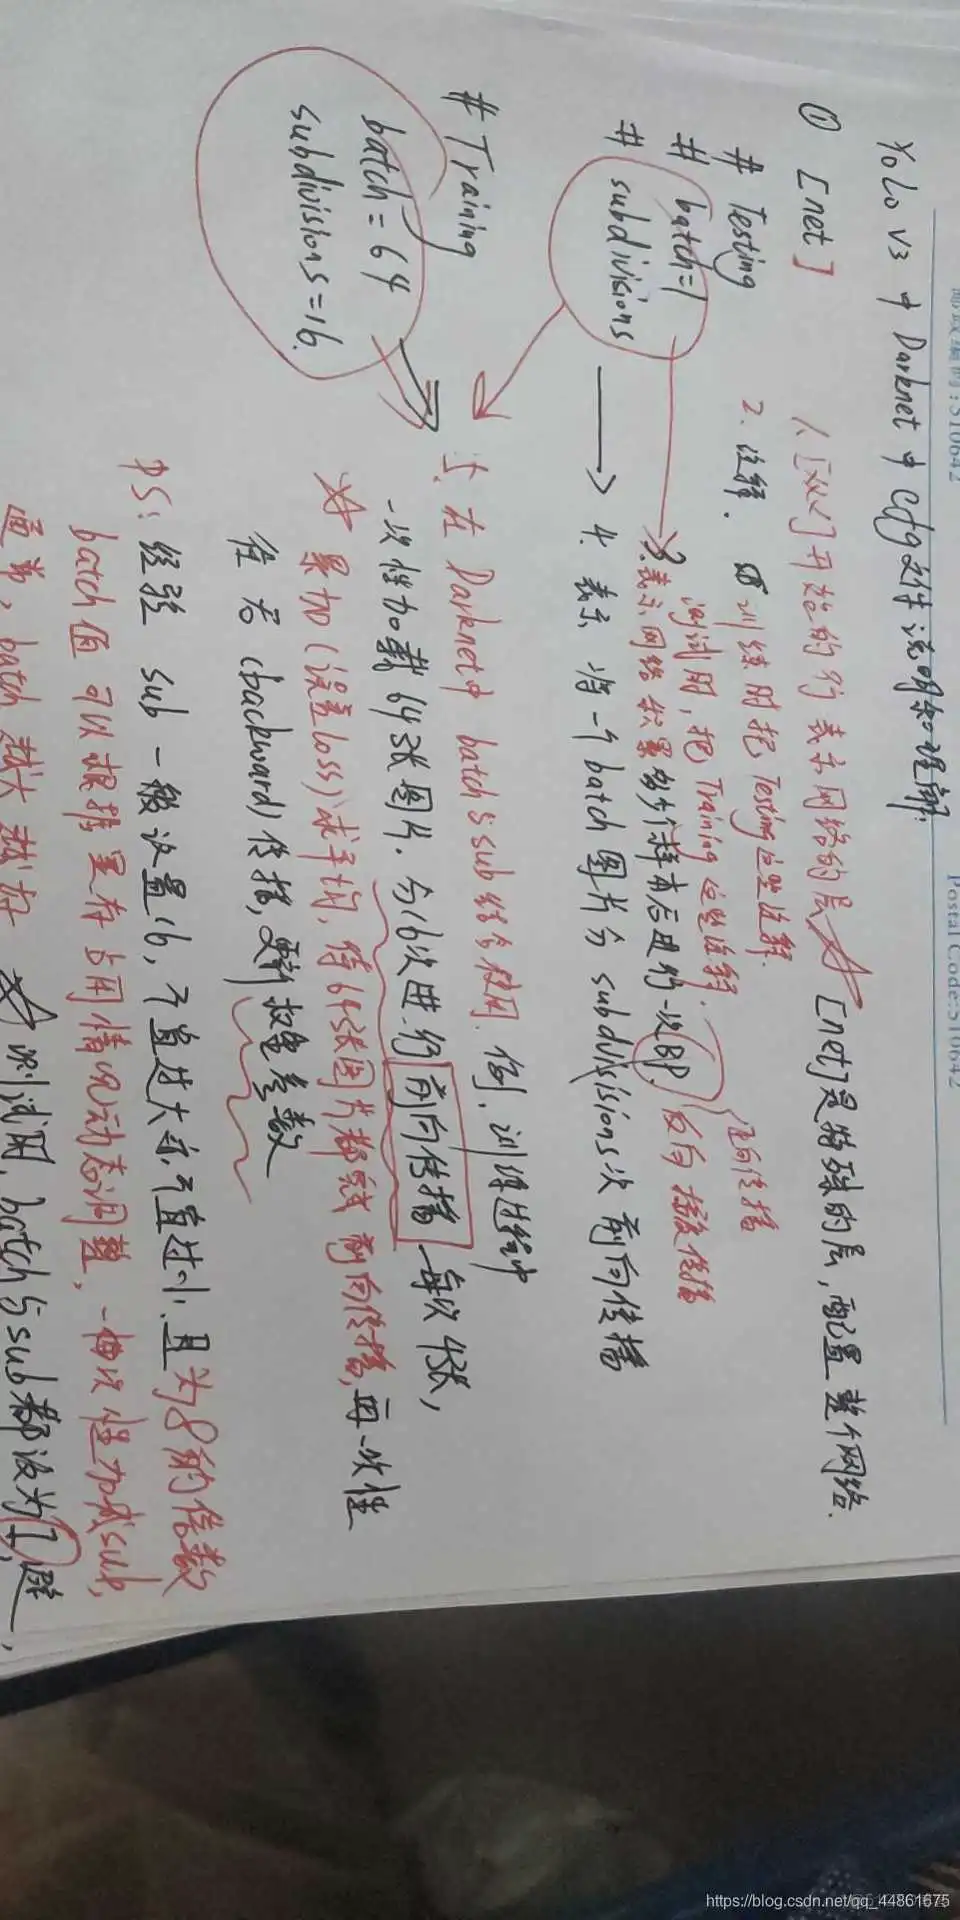 邮政编码:510642
Postal Code:510642
YoLo v3 中 Darknet 中 cfg文件说明和理解.
① [net]
1. [xx]开始的行表示网络的层 [net]是特殊的层,配置整个网络.
# Testing
2. 注释. 训练时把Testing这些注释.
测试时,把Training这些注释.
# batch=1
3.表示网络积累多少个样本后进行一次BP. 反向传播
# subdivisions
4. 表示 将一个batch图片分 subdivisions次 前向传播
# Training
batch=64
subdivisions=16.
5. 在 Darknet中 batch与sub结合使用. 例. 训练过程中
一次性加载64张图片. 分16次进行前向传播 每次4张,
累加(误差loss)求平均, 待64张图片都完成 前向传播, 再一次性
往后(backward)传播,更新权重参数
PS: 经验 sub 一般设置16, 不宜过大亦不宜过小. 且为8的倍数
batch值 可以根据显存占用情况动态调整, 一次性加减sub,
通常, batch越大越好 测试时, batch与sub都设为1
https://blog.csdn.net/qq_44861675